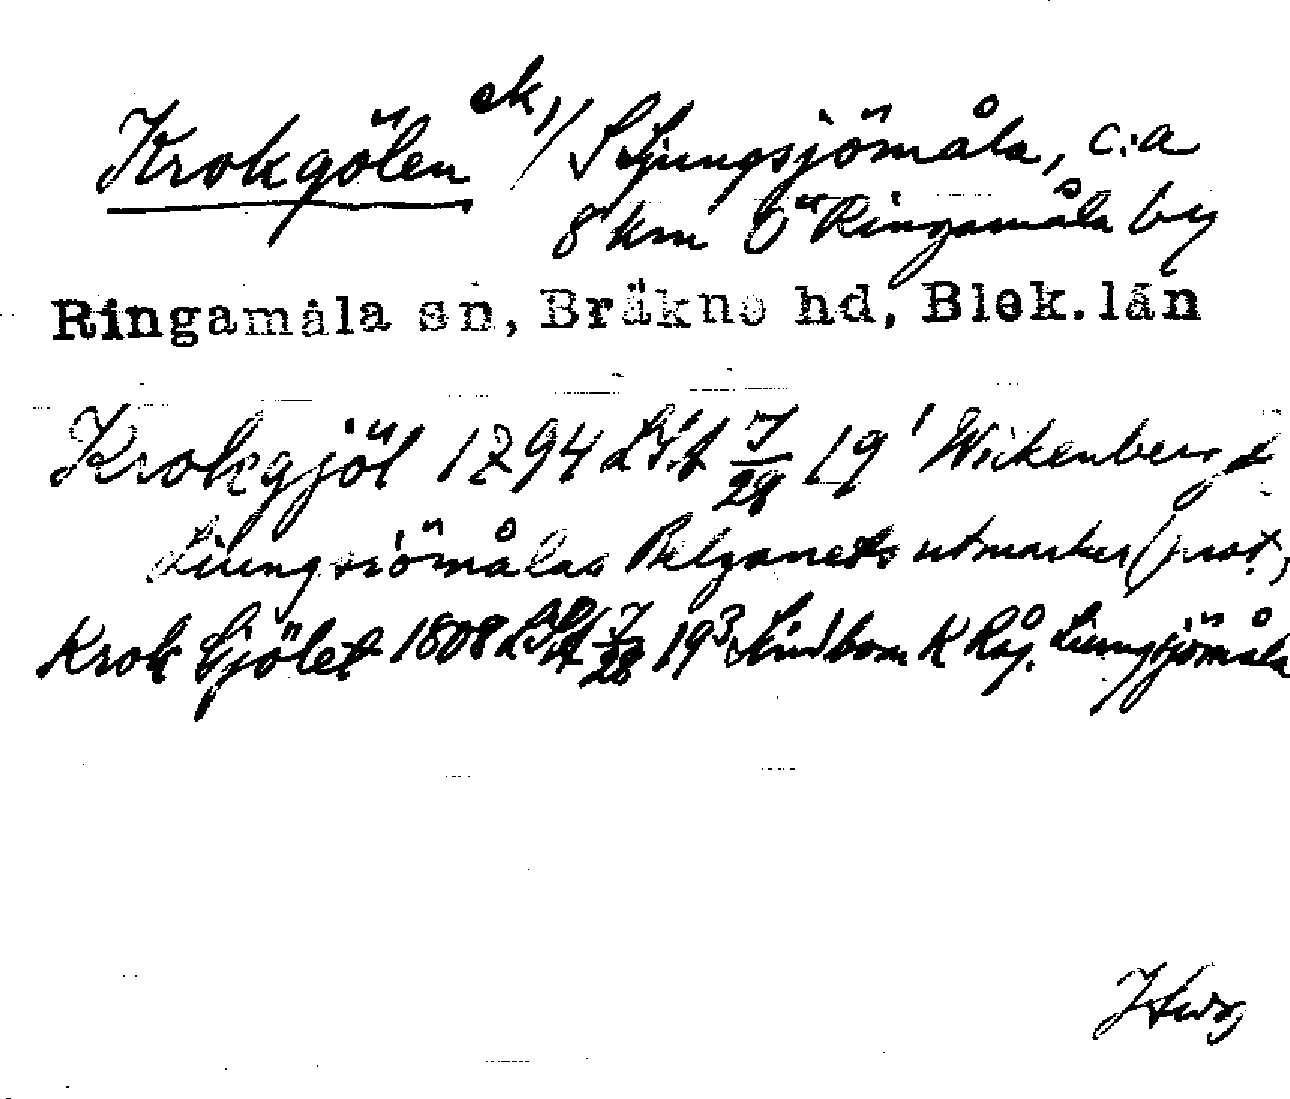 Krokgölen ek, i/ S Ljungsjömåla, c:a
8 km Ö Ringamåla by
Ringamåla sn, Bräkne hd, Blek. län
Krokgjöl 1794 LSA 7/28 19¹ Wickenberg
Liungsiömålas Belganets utmarker (prot.)
Krok Gjölet 1808 LSA 7/28 19³ Lindbom K Råg. Liungsjömåla